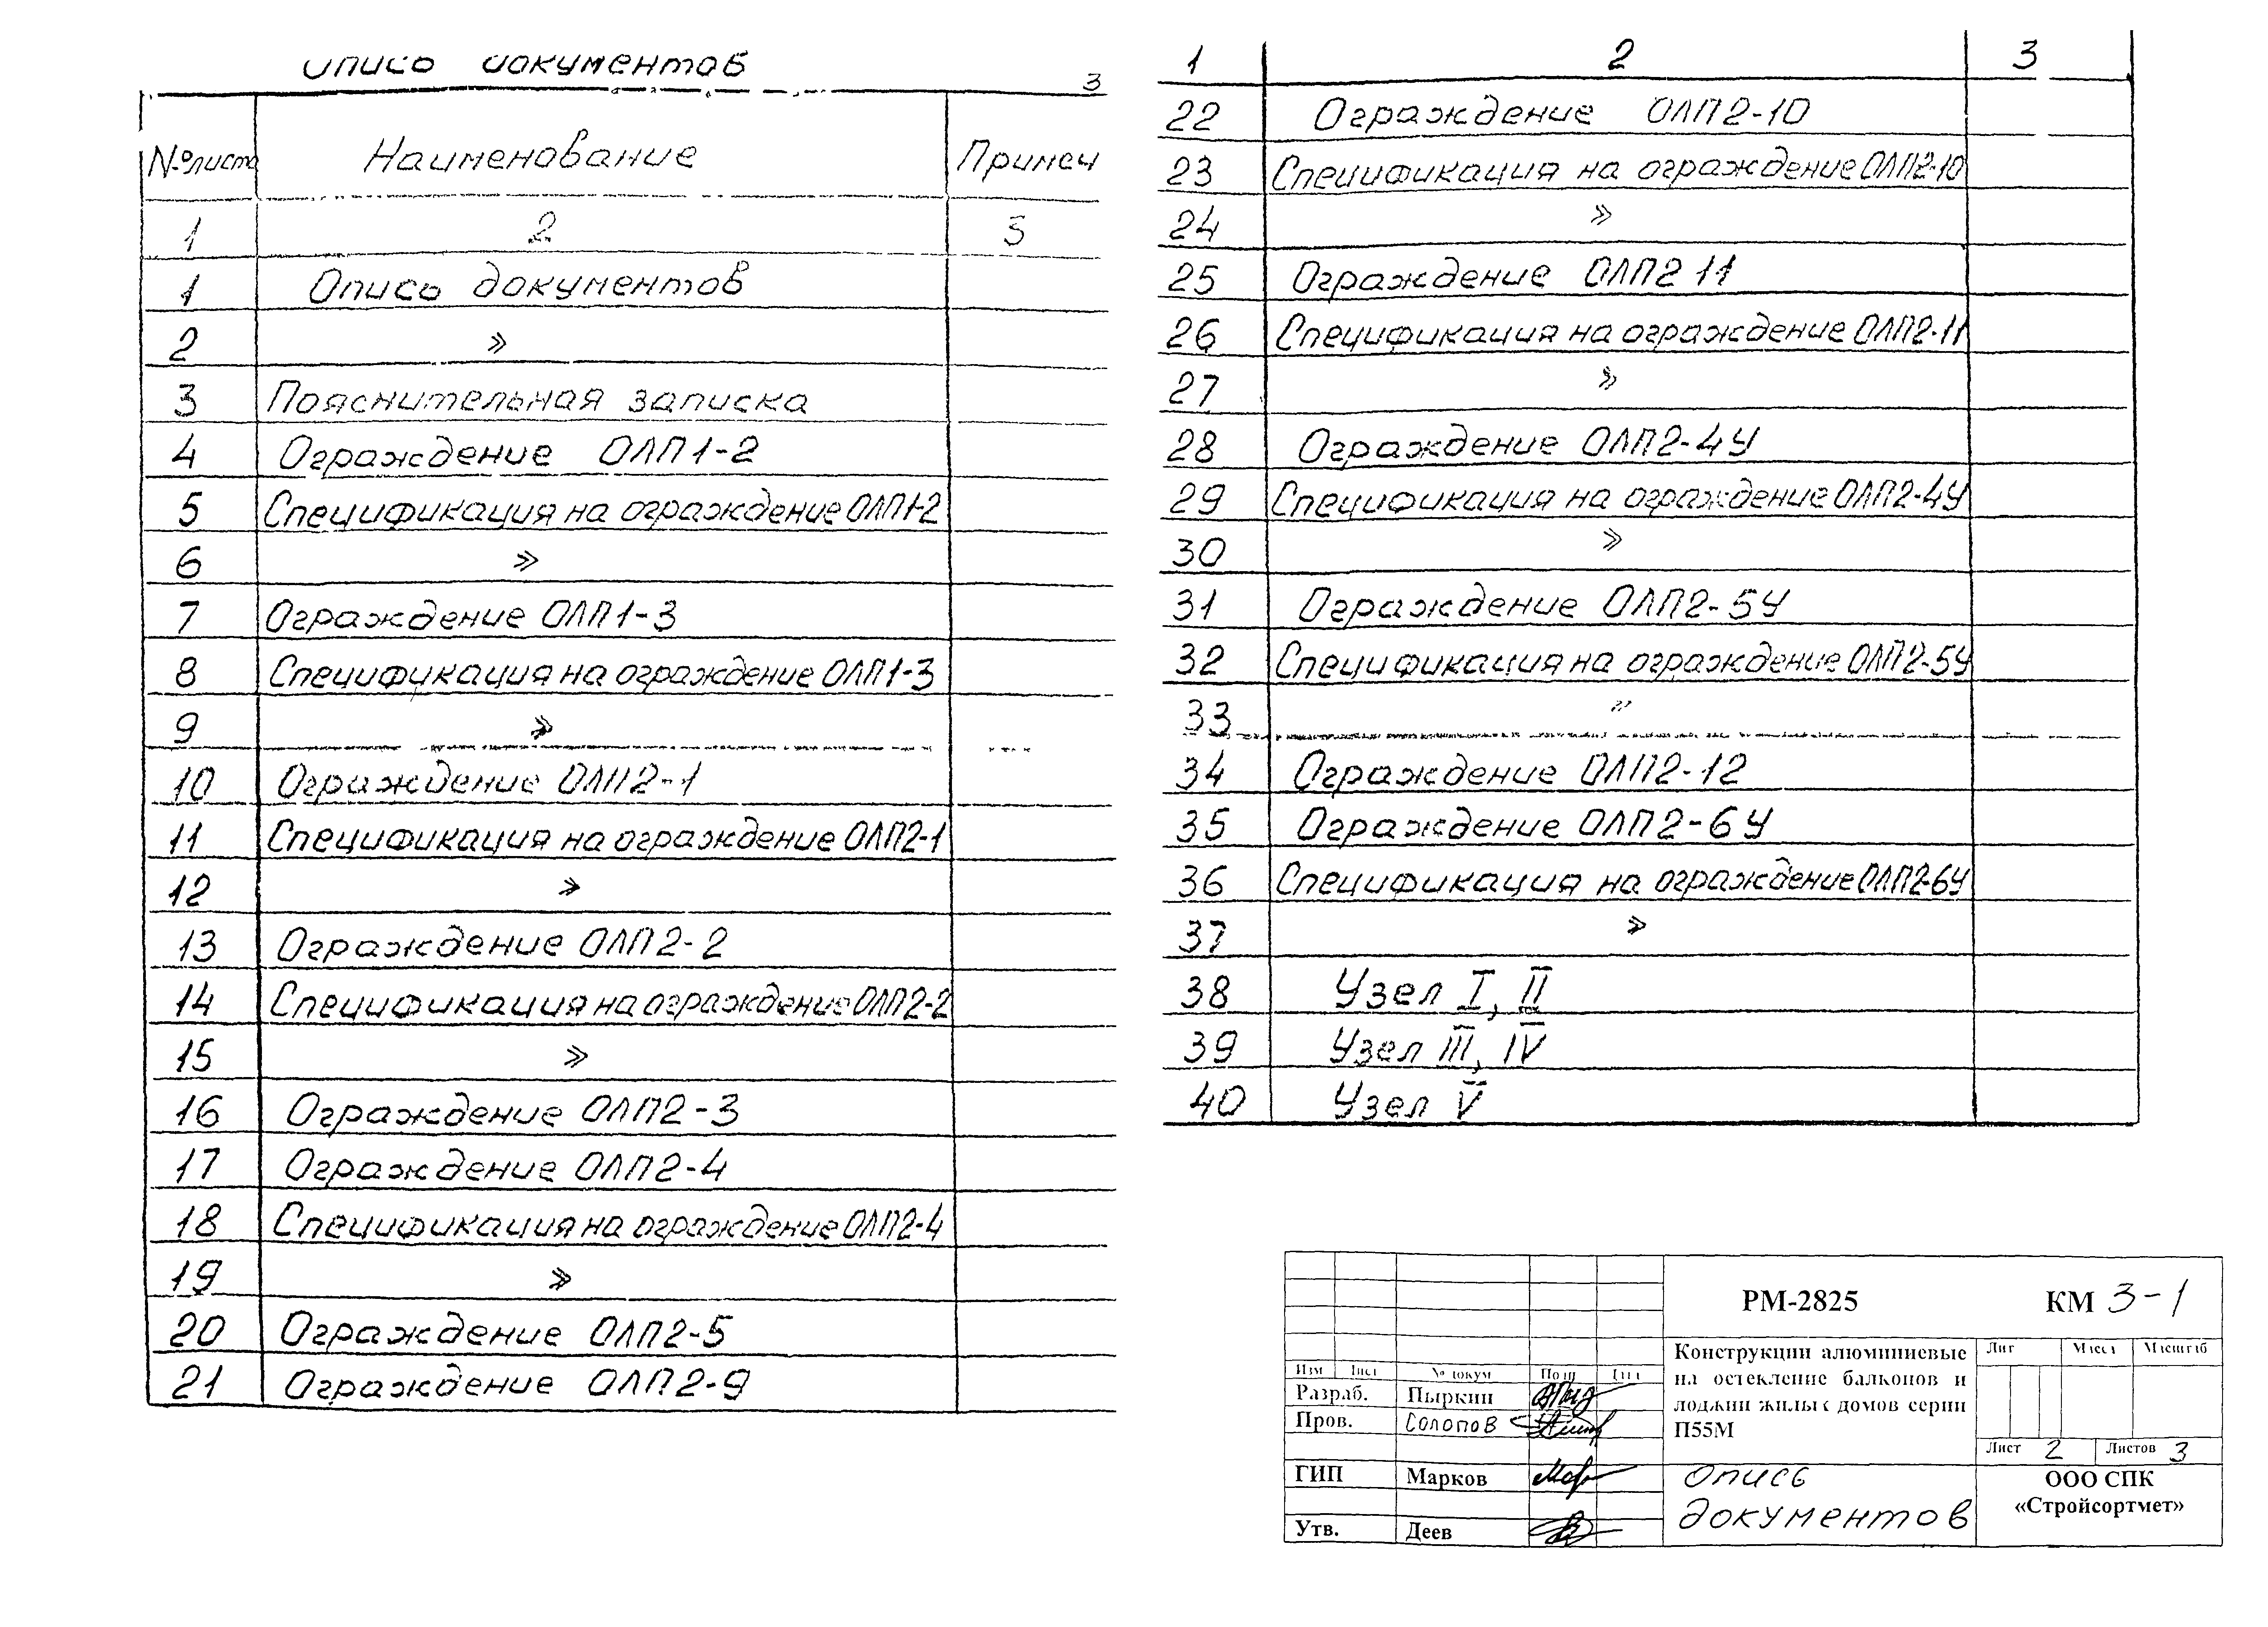 опись документов
3
№ листа Наименование Примеч
1 2 3
1 Опись документов
2 »
3 Пояснительная записка
4 Ограждение ОЛП1-2
5 Спецификация на ограждение ОЛП1-2
6 »
7 Ограждение ОЛП1-3
8 Спецификация на ограждение ОЛП1-3
9 »
10 Ограждение ОЛП2-1
11 Спецификация на ограждение ОЛП2-1
12 »
13 Ограждение ОЛП2-2
14 Спецификация на ограждение ОЛП2-2
15 »
16 Ограждение ОЛП2-3
17 Ограждение ОЛП2-4
18 Спецификация на ограждение ОЛП2-4
19 »
20 Ограждение ОЛП2-5
21 Ограждение ОЛП2-9
1 2 3
22 Ограждение ОЛП2-10
23 Спецификация на ограждение ОЛП2-10
24 »
25 Ограждение ОЛП2 11
26 Спецификация на ограждение ОЛП2-11
27 »
28 Ограждение ОЛП2-4У
29 Спецификация на ограждение ОЛП2-4У
30 »
31 Ограждение ОЛП2-5У
32 Спецификация на ограждение ОЛП2-5У
33 "
34 Ограждение ОЛП2-12
35 Ограждение ОЛП2-6У
36 Спецификация на ограждение ОЛП2-6У
37 »
38 Узел I, II
39 Узел III, IV
40 Узел V
РМ-2825 КМ 3-1
Изм Лист № докум Подп Дата
Разраб. Пыркин
Пров. Солопов
ГИП Марков
Утв. Деев
Конструкции алюминиевые
на остекление балконов и
лоджии жилых домов серии
П55М
опись
документов
Лит Масса Масштаб
Лист 2 Листов 3
ООО СПК
«Стройсортмет»